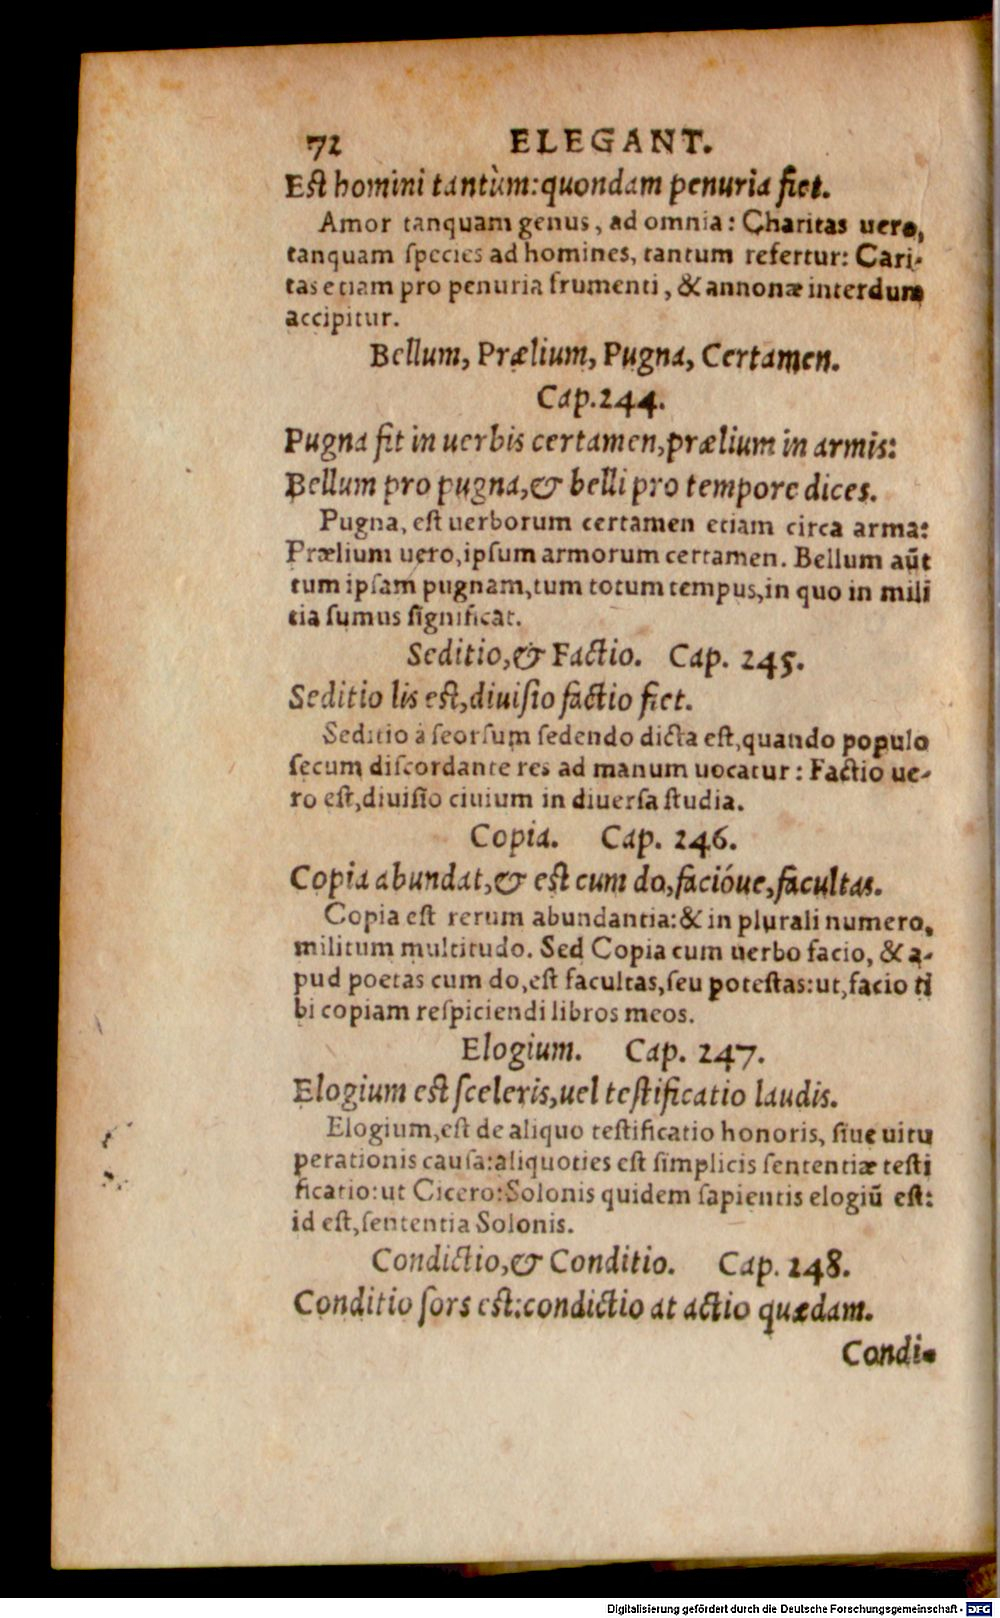 72 ELEGANT.
Est homini tantùm: quondam penuria fiet.
Amor tanquam genus, ad omnia: Charitas uero,
tanquam ſpecies ad homines, tantum refertur: Cari-
tas etiam pro penuria frumenti, & annonæ interdum
accipitur.
Bellum, Prælium, Pugna, Certamen.
Cap. 244.
Pugna fit in uerbis certamen, prælium in armis:
Bellum pro pugna, & belli pro tempore dices.
Pugna, eſt uerborum certamen etiam circa arma:
Prælium uero, ipſum armorum certamen. Bellum aūt
tum ipſam pugnam, tum totum tempus, in quo in mili
tia ſumus ſignificat.
Seditio, & Factio. Cap. 245.
Seditio lis eſt, diuiſio factio fiet.
Seditio à ſeorſum ſedendo dicta eſt, quando populo
ſecum diſcordante res ad manum uocatur: Factio ue-
ro eſt, diuiſio ciuium in diuerſa ſtudia.
Copia. Cap. 246.
Copia abundat, & eſt cum do, facióue, facultas.
Copia eſt rerum abundantia: & in plurali numero,
militum multitudo. Sed Copia cum uerbo facio, & a-
pud poetas cum do, eſt facultas, ſeu poteſtas: ut, facio ti
bi copiam reſpiciendi libros meos.
Elogium. Cap. 247.
Elogium eſt ſceleris, uel teſtificatio laudis.
Elogium, eſt de aliquo teſtificatio honoris, ſiue uitu
perationis cauſa: aliquoties eſt ſimplicis ſententiæ teſti
ficatio: ut Cicero: Solonis quidem ſapientis elogiū eſt:
id eſt, ſententia Solonis.
Condictio, & Conditio. Cap. 248.
Conditio ſors eſt: condictio at actio quædam.
Condi-
Digitalisierung gefördert durch die Deutsche Forschungsgemeinschaft - DFG